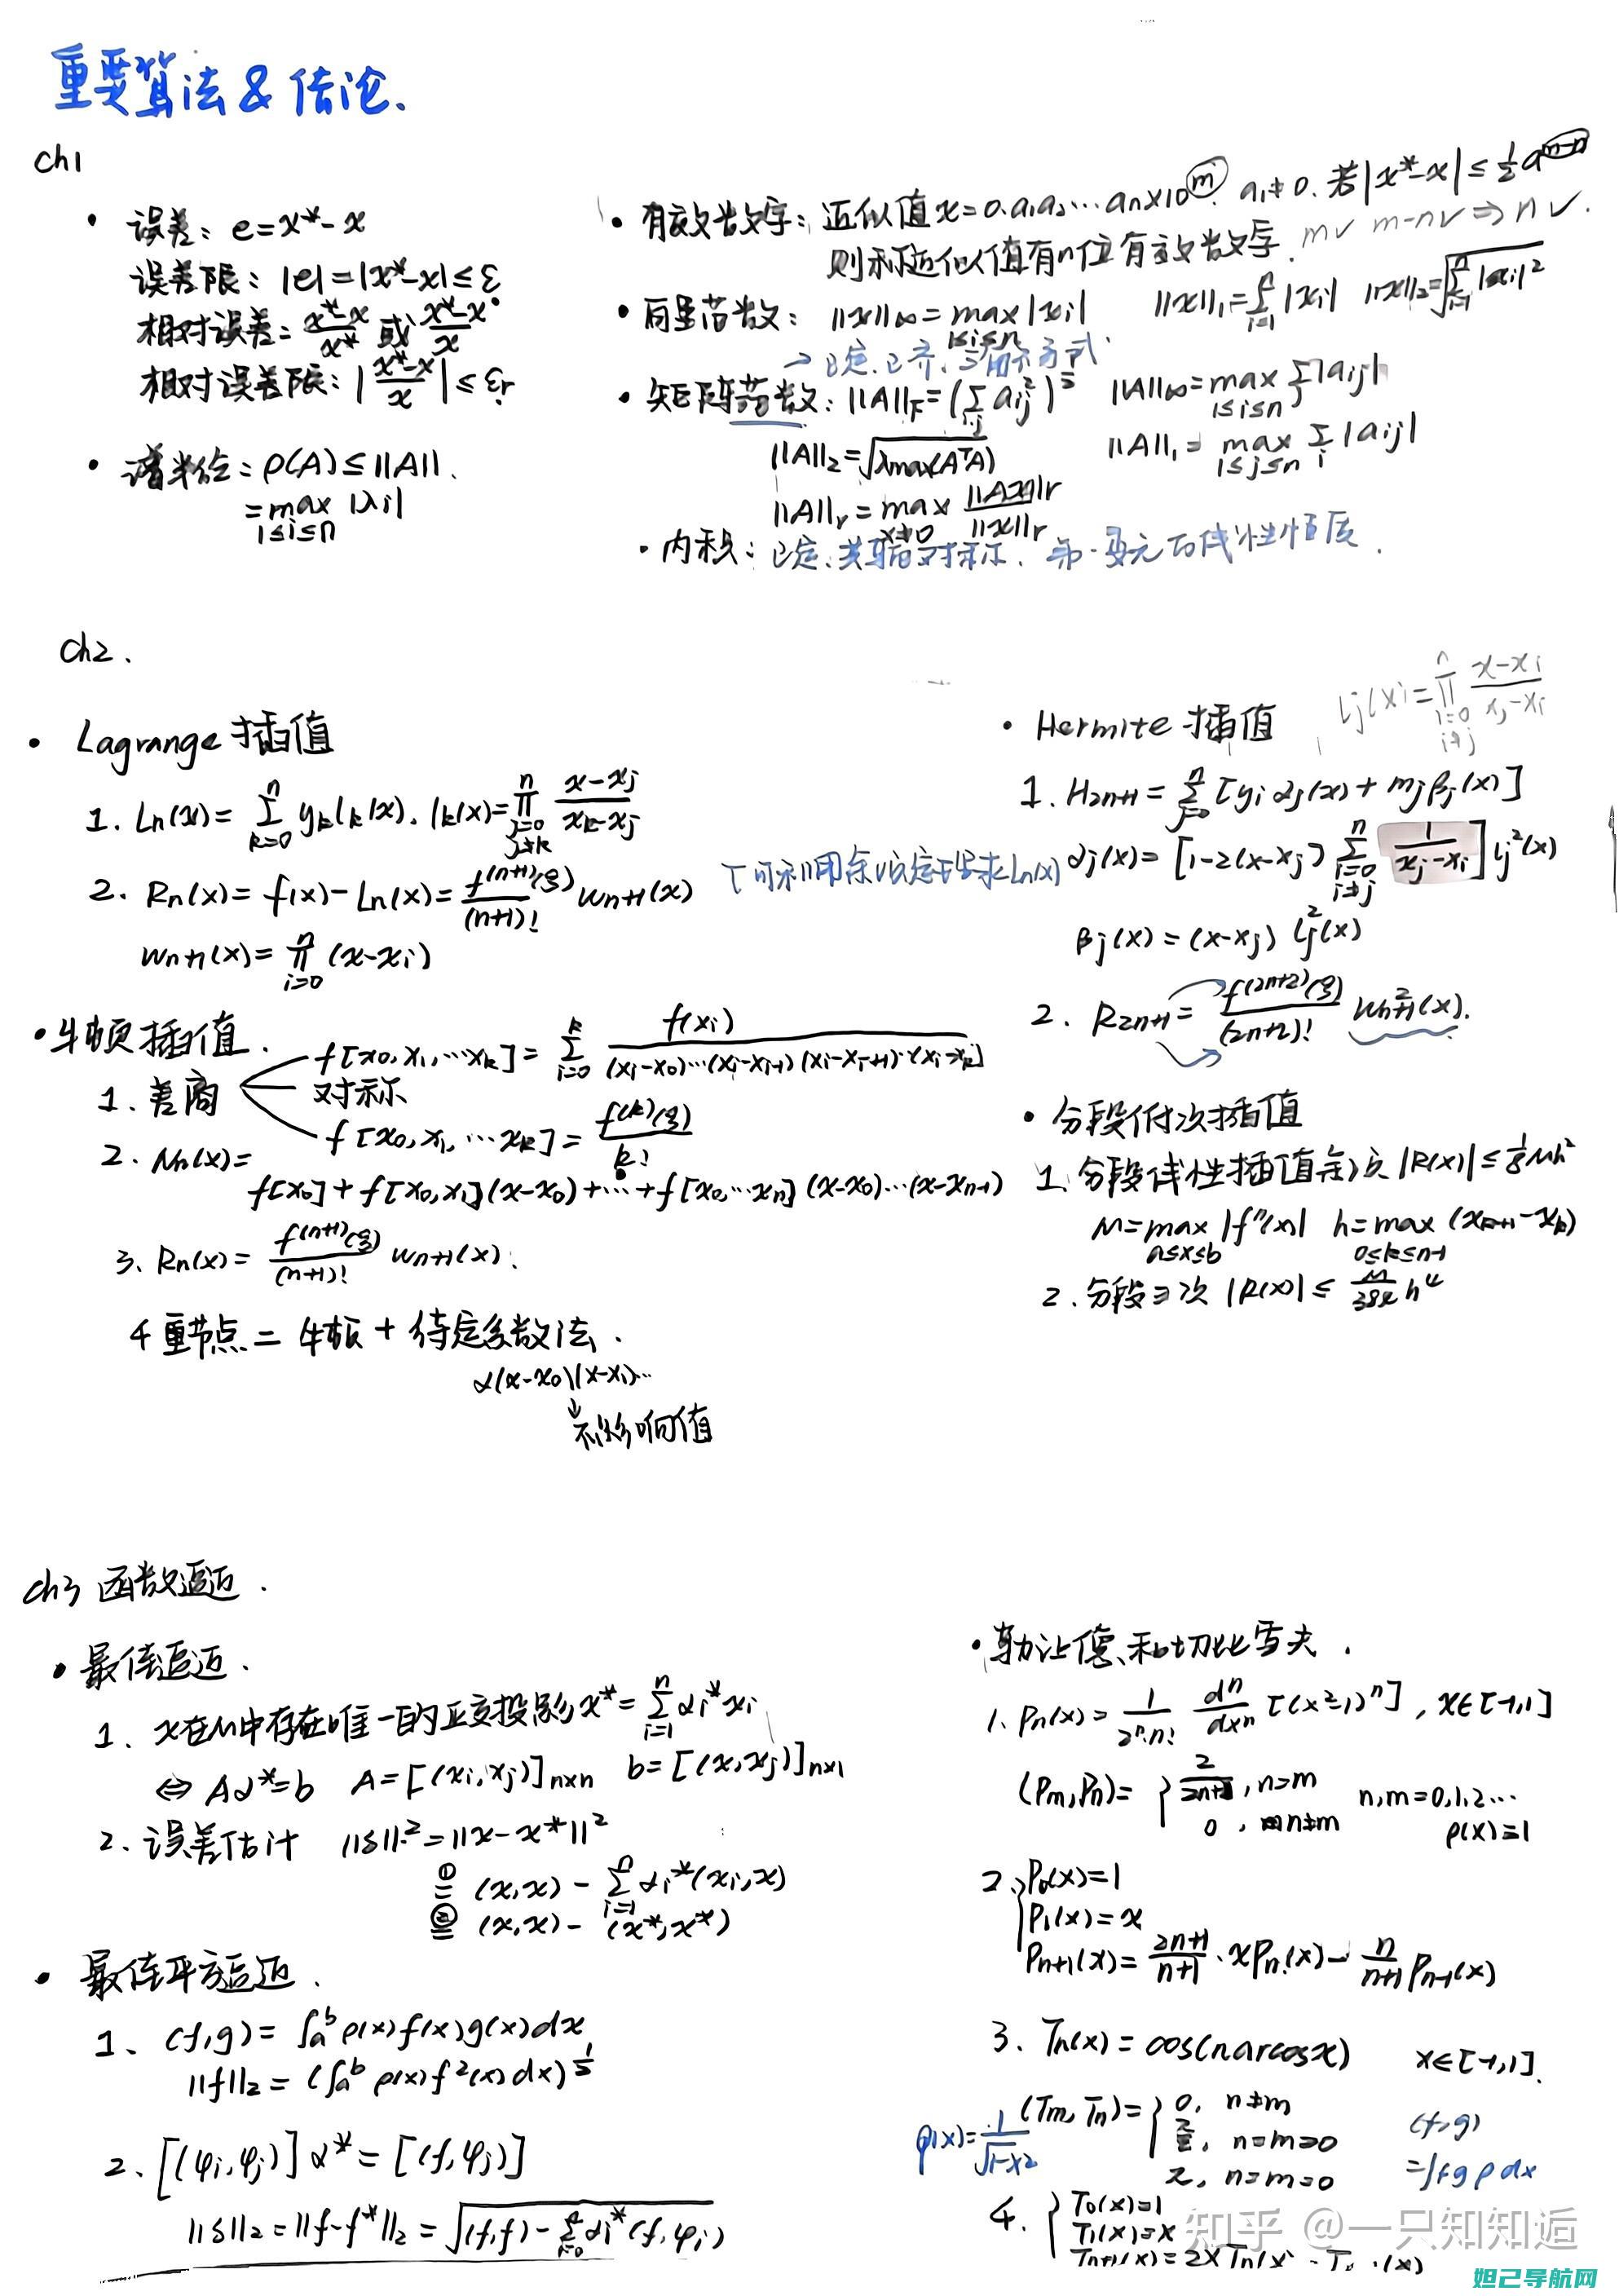 重要算法 & 结论.
ch1
· 误差: e=x*-x
误差限: |e|=|x*-x|≤ε
相对误差= (x*-x)/x* 或 (x*-x)/x
相对误差限: |(x*-x)/x|≤εr
· 谱半径: ρ(A)≤||A||.
=max |λi|
1≤i≤n
· 有效数字: 近似值 x=0.a1a2…an×10^m. a1≠0. 若|x*-x|≤1/2 a^(m-n)
则称近似值有n位有效数字. m✓ m-n✓ ⇒ n✓.
· 向量范数: ||x||∞=max|xi| ||x||1=Σ|xi| ||x||2=√(Σ|xi|²)
1≤i≤n
→正定.正齐.三角不等式.
· 矩阵范数: ||A||F=(Σ aij²)^(1/2) ||A||∞=max Σ|aij|
||A||2=√(λmax(AᵀA)) ||A||1=max Σ|aij|
||A||r=max ||Ax||r/||x||r
x≠0
· 内积: 正定.共轭对称. 第一变元的线性性质.
ch2.
· Lagrange 插值
1. Ln(x)=Σ(k=0..n) yk lk(x). lk(x)=Π(j=0, j≠k..n) (x-xj)/(xk-xj)
2. Rn(x)=f(x)-Ln(x)=f^(n+1)(ξ)/(n+1)! Wn+1(x)
Wn+1(x)=Π(i=0..n)(x-xi)
· 牛顿插值.
1. 差商 f[x0,x1,…xk]=Σ(i=0..k) f(xi)/((xi-x0)…(xi-xi-1)(xi-xi+1)…(xi-xk))
对称
f[x0,x1,…xk]=f^(k)(ξ)/k!
2. Nn(x)=
f[x0]+f[x0,x1](x-x0)+…+f[x0,…xn](x-x0)…(x-xn-1)
3. Rn(x)=f^(n+1)(ξ)/(n+1)! Wn+1(x).
4 重节点 = 牛顿 + 待定系数法.
α(x-x0)(x-x1)…
↓
不影响值
· Hermite 插值 lj(x)=Π(i=0, i≠j..n) (x-xi)/(xj-xi)
1. H2n+1=Σ(j=0..n)[yj αj(x)+mj βj(x)]
αj(x)=[1-2(x-xj)Σ(i=0, i≠j..n) 1/(xj-xi)] lj²(x)
βj(x)=(x-xj) lj²(x)
2. R2n+1=f^(2n+2)(ξ)/(2n+2)! Wn+1²(x).
· 分段低次插值
1. 分段线性插值余项 |R(x)|≤1/8 Mh²
M=max|f''(x)| h=max(xk+1-xk)
a≤x≤b 0≤k≤n-1
2. 分段三次 |R(x)|≤M/384 h⁴
ch3 函数逼近.
· 最佳逼近.
1. x在M中存在唯一的正交投影x*=Σ(i=1..n) αi* xi
⇔ Aα*=b A=[(xi,xj)]n×n b=[(x,xj)]n×1
2. 误差估计 ||δ||²=||x-x*||²
①= (x,x)-Σ(i=1..n) αi*(xi,x)
②= (x,x)-(x*,x*)
· 最佳平方逼近.
1. (f,g)=∫a^b ρ(x)f(x)g(x)dx
||f||2=(∫a^b ρ(x)f²(x)dx)^(1/2)
2. [(φi,φj)]α*=[(f,φj)]
||δ||2=||f-f*||2=√((f,f)-Σ(i=0..n) αi*(f,φi))
· 勒让德和切比雪夫.
1. Pn(x)=1/(2ⁿ·n!) dⁿ/dxⁿ[(x²-1)ⁿ], x∈[-1,1]
(Pm,Pn)={ 2/(2n+1), n=m n,m=0,1,2…
0, n≠m ρ(x)=1
2. {P0(x)=1
P1(x)=x
Pn+1(x)=(2n+1)/(n+1)·xPn(x)-n/(n+1) Pn-1(x)
3. Tn(x)=cos(n arccosx) x∈[-1,1].
ρ(x)=1/√(1-x²) (Tm,Tn)={ 0, n≠m (f,g)
π/2, n=m≠0 =∫fgρdx
π, n=m=0
4. {T0(x)=1
T1(x)=x
Tn+1(x)=2xTn(x)-Tn-1(x)
知乎 @一只知知逅
妲己导航网